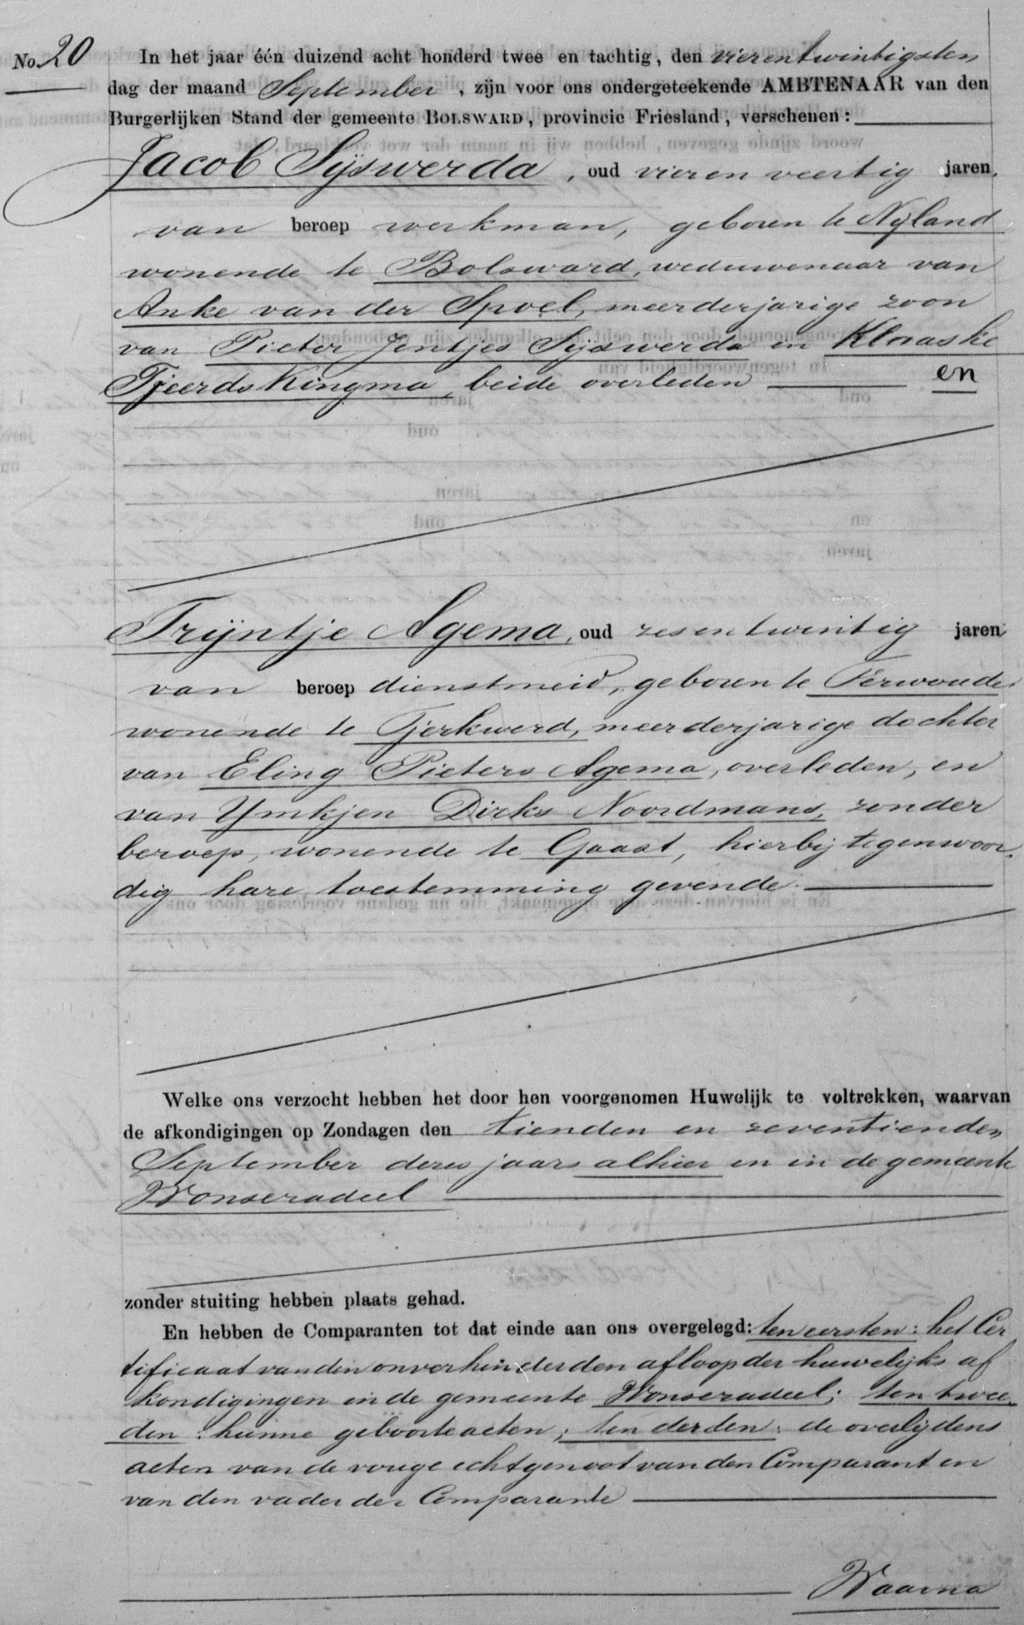 No. 20 In het jaar één duizend acht honderd twee en tachtig, den vierentwintigsten
dag der maand September, zijn voor ons ondergeteekende AMBTENAAR van den
Burgerlijken Stand der gemeente BOLSWARD, provincie Friesland, verschenen:
Jacob Sijswerda, oud vieren veertig jaren,
van beroep werkman, geboren te Nijland
wonende te Bolsward, weduwenaar van
Anke van der Spoel, meerderjarige zoon
van Pieter Jentjes Sijswerda en Klaaske
Tjeerds Kingma, beide overleden en
Trijntje Agema, oud zesentwintig jaren
van beroep dienstmeid, geboren te Ferwoude
wonende te Tjerkwerd, meerderjarige dochter
van Eling Pieters Agema, overleden, en
van Ymkjen Dirks Noordmans, zonder
beroep, wonende te Gaast, hierbij tegenwoor-
dig hare toestemming gevende.
Welke ons verzocht hebben het door hen voorgenomen Huwelijk te voltrekken, waarvan
de afkondigingen op Zondagen den tienden en zeventienden
September dezes jaars alhier en in de gemeente
Wonseradeel
zonder stuiting hebben plaats gehad.
En hebben de Comparanten tot dat einde aan ons overgelegd: ten eersten: het Cer
tificaat van den onverhinderden afloop der huwelijks af
kondigingen in de gemeente Wonseradeel; ten twee-
den: hunne geboorteacten; ten derden: de overlijdens
acten van de vorige echtgenoot van den Comparant en
van den vader der Comparante
Waarna